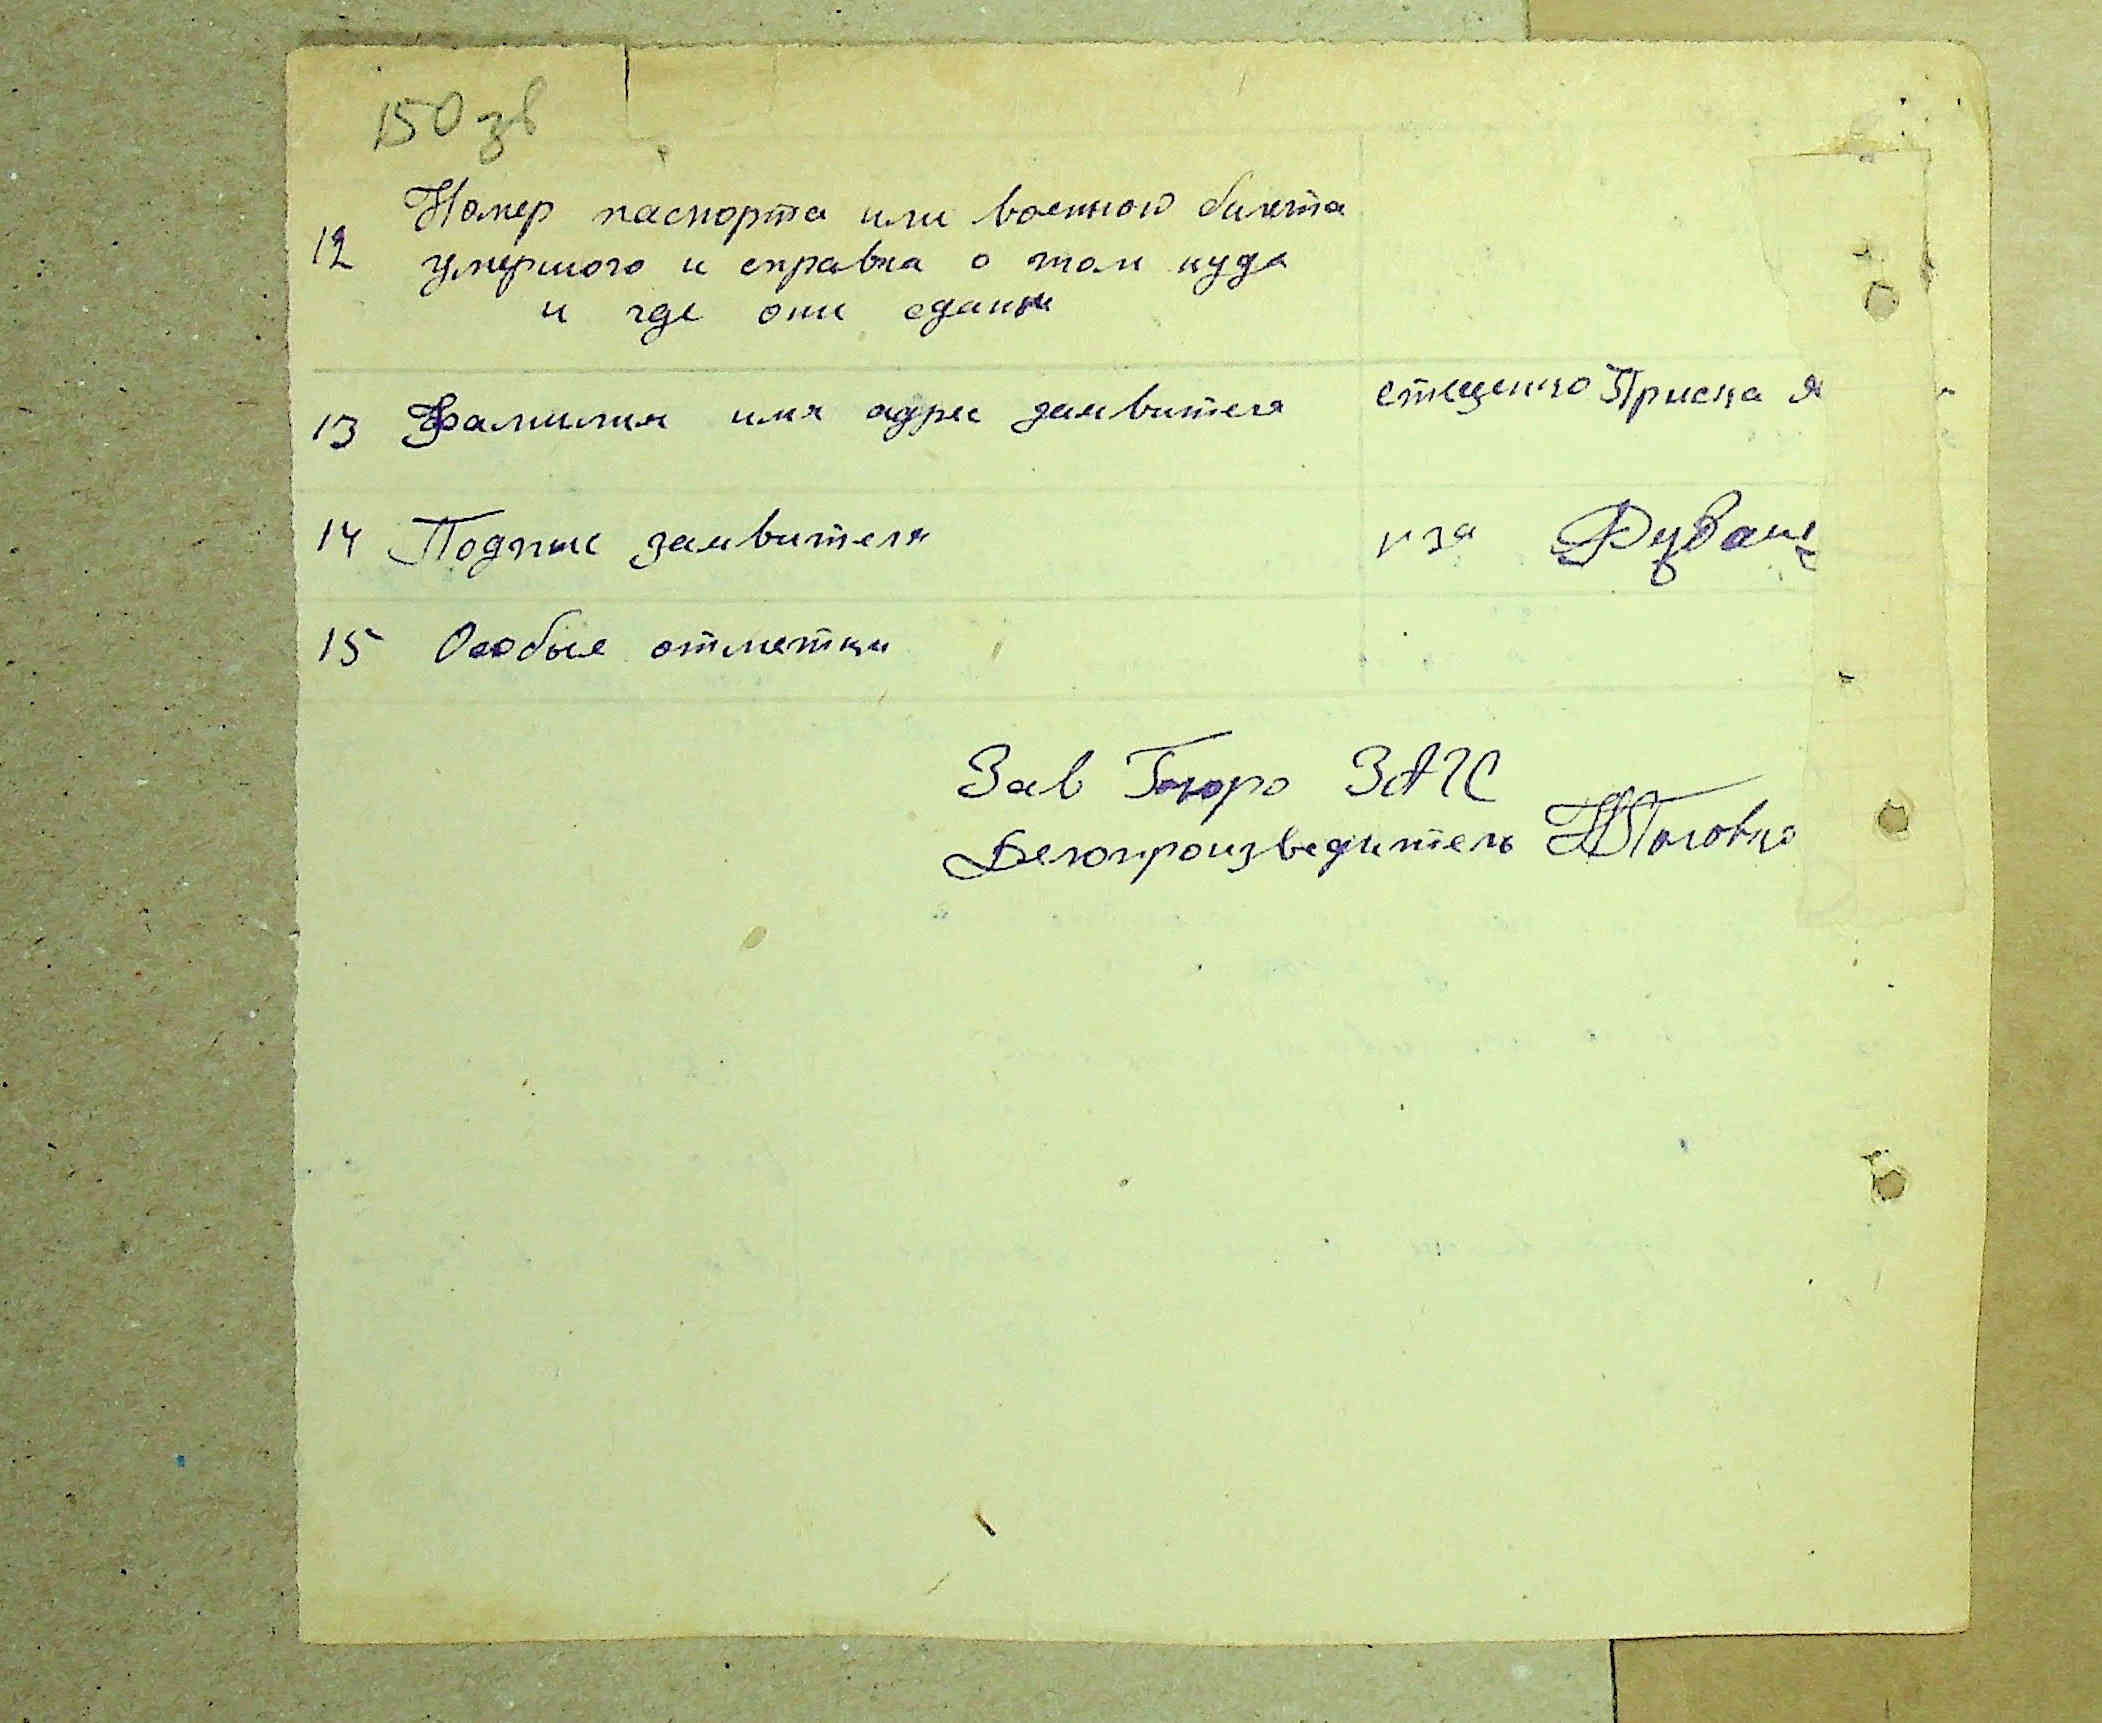 150 зв
12 Номер паспорта или военного билета
умершого и справка о том куда
и где они сданы
13 Фамилия имя адрес заявителя Стеценко Приска Я
14 Подпис заявителя за
15 Особые отметки
Зав Бюро ЗАГС
Делопроизводитель Головко